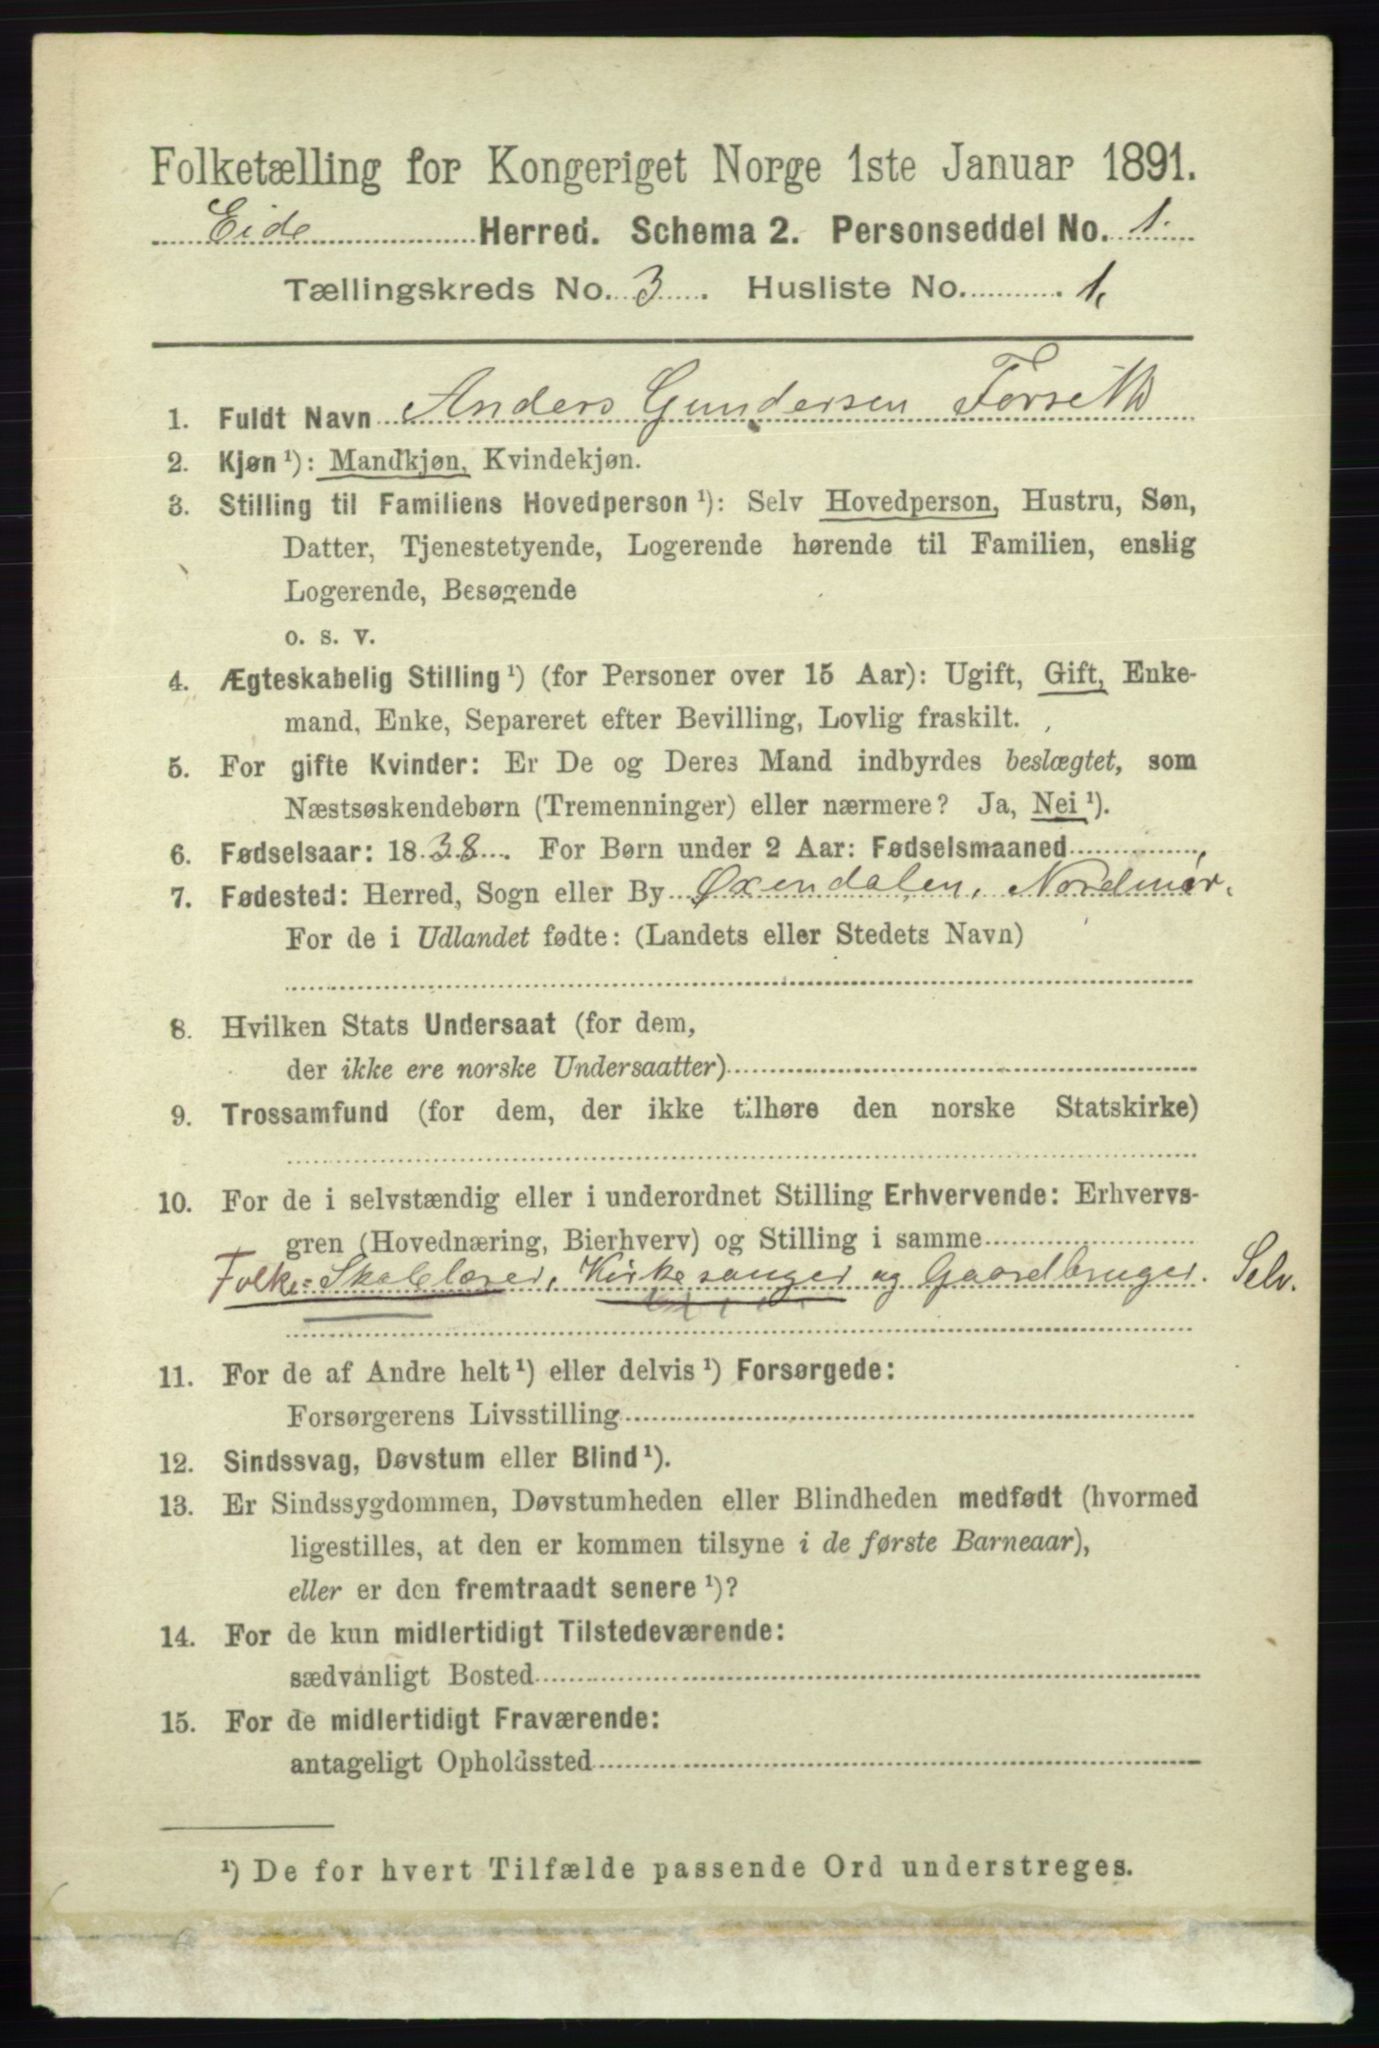 Folketælling for Kongeriget Norge 1ste Januar 1891.
Eide Herred. Schema 2. Personseddel No. 1.
Tællingskreds No. 3. Husliste No. 1.
1. Fuldt Navn Anders Gundersen Forseth
2. Kjøn¹): Mandkjøn, Kvindekjøn.
3. Stilling til Familiens Hovedperson¹): Selv Hovedperson, Hustru, Søn,
Datter, Tjenestetyende, Logerende hørende til Familien, enslig
Logerende, Besøgende
o. s. v.
4. Ægteskabelig Stilling¹) (for Personer over 15 Aar): Ugift, Gift, Enke-
mand, Enke, Separeret efter Bevilling, Lovlig fraskilt.
5. For gifte Kvinder: Er De og Deres Mand indbyrdes beslægtet, som
Næstsøskendebørn (Tremenninger) eller nærmere? Ja, Nei¹).
6. Fødselsaar: 1838. For Børn under 2 Aar: Fødselsmaaned
7. Fødested: Herred, Sogn eller By Øxendalen, Nordmør.
For de i Udlandet fødte: (Landets eller Stedets Navn)
8. Hvilken Stats Undersaat (for dem,
der ikke ere norske Undersaatter)
9. Trossamfund (for dem, der ikke tilhøre den norske Statskirke)
10. For de i selvstændig eller i underordnet Stilling Erhvervende: Erhvervs-
gren (Hovednæring, Bierhverv) og Stilling i samme
Folke-Skolelærer, Kirkesanger og Gaardbruger. Selv.
11. For de af Andre helt¹) eller delvis¹) Forsørgede:
Forsørgerens Livsstilling
12. Sindssvag, Døvstum eller Blind¹).
13. Er Sindssygdommen, Døvstumheden eller Blindheden medfødt (hvormed
ligestilles, at den er kommen tilsyne i de første Barneaar),
eller er den fremtraadt senere¹)?
14. For de kun midlertidigt Tilstedeværende:
sædvanligt Bosted
15. For de midlertidigt Fraværende:
antageligt Opholdssted
¹) De for hvert Tilfælde passende Ord understreges.